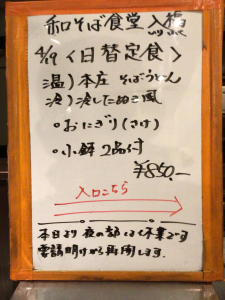 和そば食堂
4/19 〈日替定食〉
温）本庄 そばうどん
冷）冷したぬき風
・おにぎり(さけ)
・小鉢 2品付
¥850.-
入口こちら
本日より 夜の部 しばらく休業です
明けから再開します。